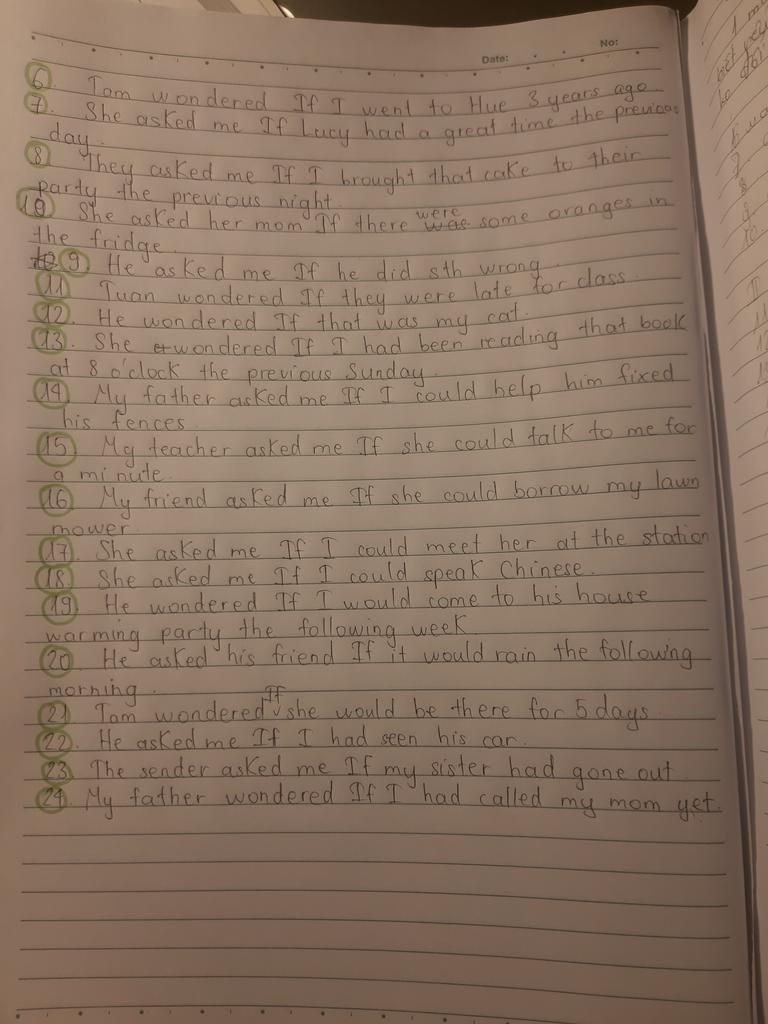 Date:
No:
6. Tam wondered If I went to Hue 3 years ago
7. She asked me If Lucy had a great time the previous
day.
8 They asked me If I brought that cake to their
party the previous night.
10 She asked her mom If there were was some oranges in
the fridge
10 9 He asked me If he did sth wrong
11 Tuan wondered If they were late for class.
12. He wondered If that was my cat.
13. She wondered If I had been reading that book
at 8 o'clock the previous Sunday.
14 My father asked me If I could help him fixed
his fences.
15 My teacher asked me If she could talk to me for
a minute.
16 My friend asked me If she could borrow my lawn
mower.
17. She asked me If I could meet her at the station
18. She asked me If I could speak Chinese.
19 He wondered If I would come to his house
warming party the following week
20. He asked his friend If it would rain the following
morning.
21 Tam wondered If she would be there for 5 days
22. He asked me If I had seen his car.
23 The sender asked me If my sister had gone out
24. My father wondered If I had called my mom yet.